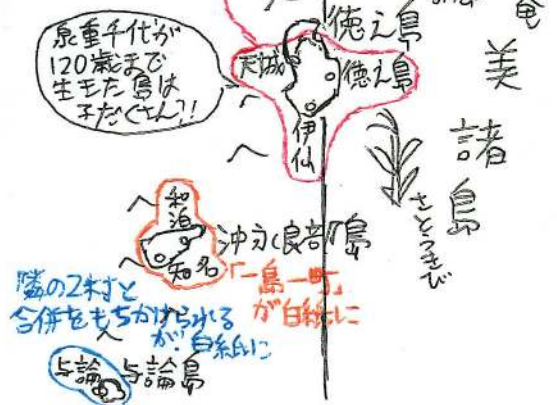 奄美諸島
徳之島
泉重千代が
120歳まで
生きた島は
子だくさん?!
天城
徳之島
伊仙
さとうきび
和泊
知名
沖永良部島
「一島一町」
が白紙に
隣の2村と
合併をもちかけられる
が、白紙に
与論
与論島